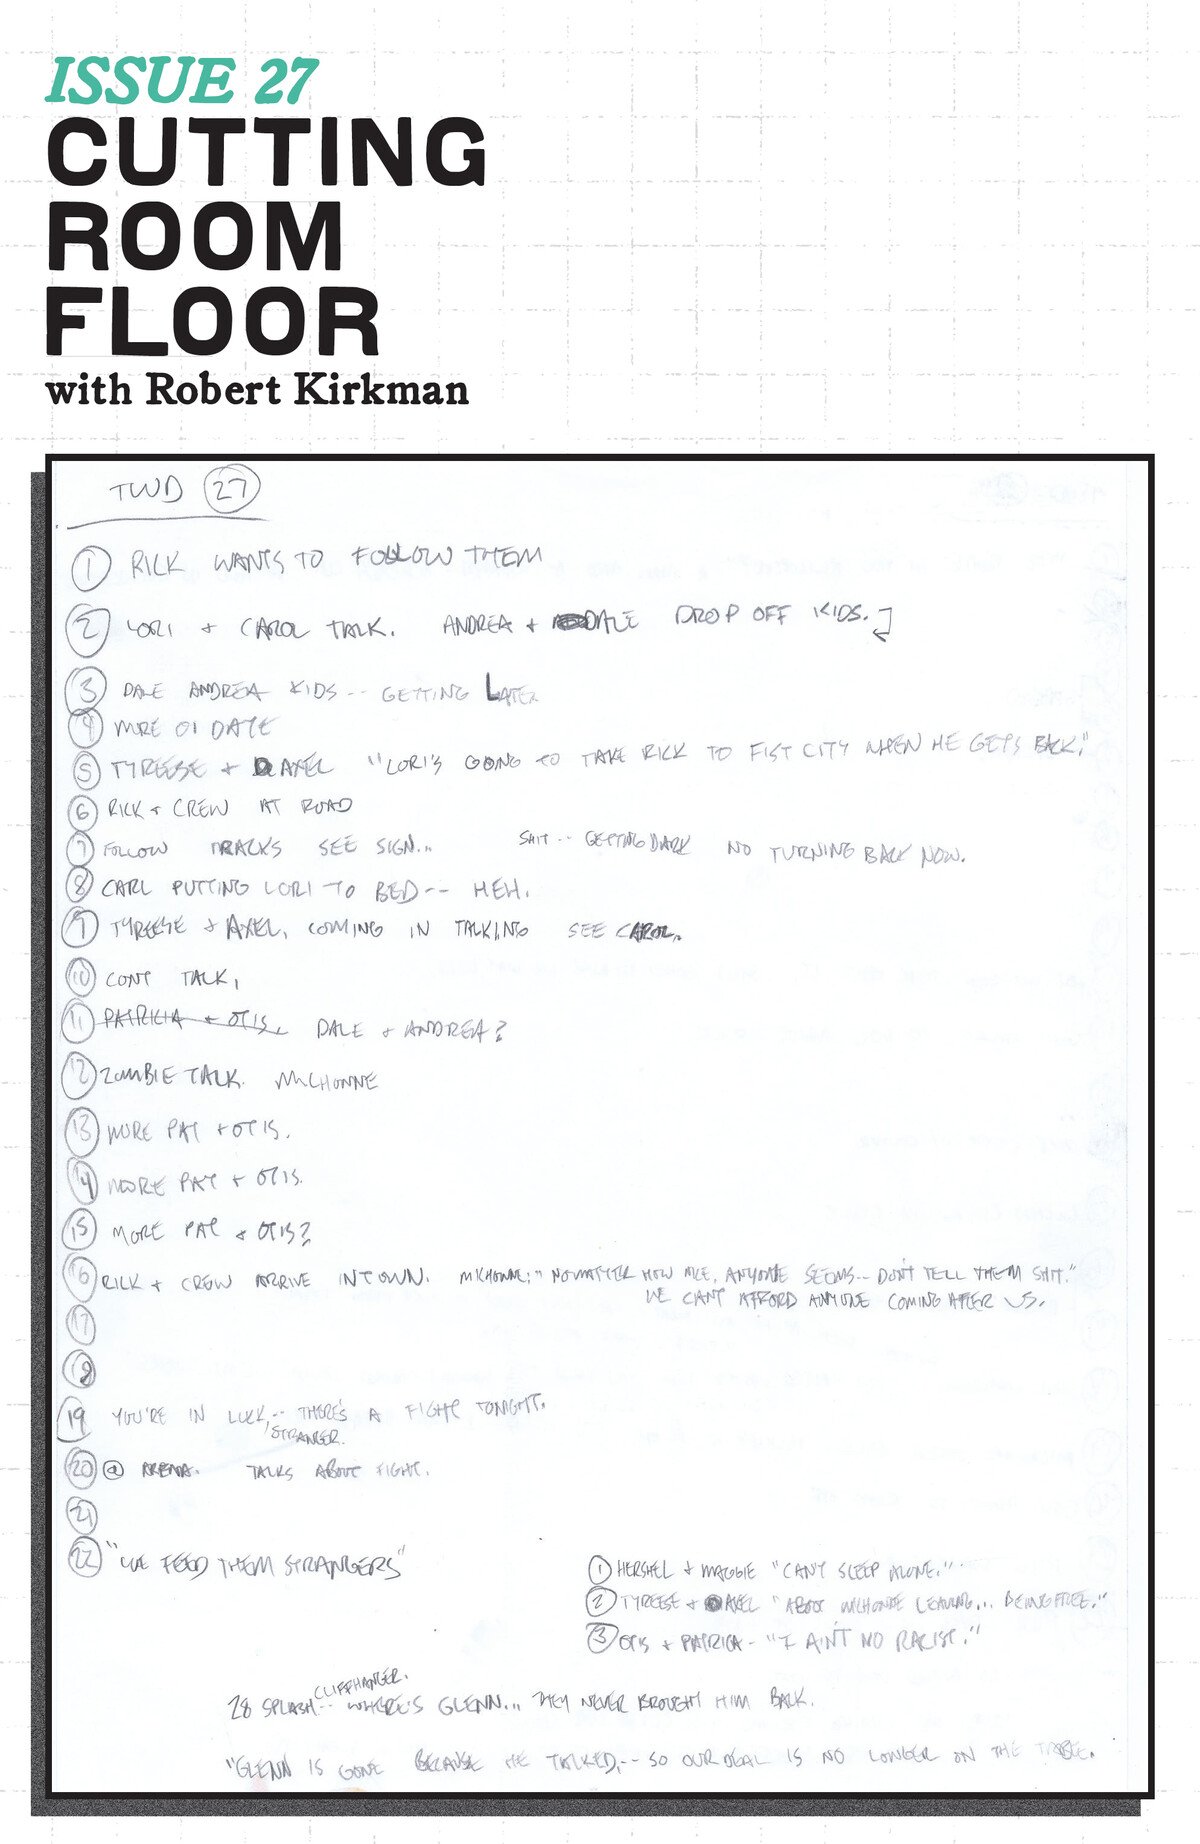 ISSUE 27
CUTTING
ROOM
FLOOR
with Robert Kirkman
TWD 27
1 RICK WANTS TO FOLLOW THEM
2 LORI + CAROL TALK. ANDREA + DALE DROP OFF KIDS.
3 DALE ANDREA KIDS -- GETTING LATER
4 MRE OI DALE
5 TYREESE + AXEL "LORI'S GOING TO TAKE RICK TO FIST CITY WHEN HE GETS BACK."
6 RICK + CREW AT ROAD
7 FOLLOW TRACKS SEE SIGN... SHIT -- GETTING DARK NO TURNING BACK NOW.
8 CARL PUTTING LORI TO BED -- HEH.
9 TYREESE + AXEL, COMING IN TALKING SEE CAROL.
10 CONT TALK,
11 PATRICIA + OTIS. DALE + ANDREA?
12 ZOMBIE TALK. MICHONNE
13 MORE PAT + OTIS.
14 MORE PAT + OTIS.
15 MORE PAT + OTIS?
16 RICK + CREW ARRIVE IN TOWN. MICHONNE: "NO MATTER HOW NICE, ANYONE SEEMS -- DON'T TELL THEM SHIT."
WE CAN'T AFFORD ANYONE COMING AFTER US.
17
18
19 YOU'RE IN LUCK, -- THERE'S A FIGHT TONIGHT.
STRANGER.
20 @ ARENA. TALKS ABOUT FIGHT.
21
22 "WE FEED THEM STRANGERS"
1 HERSHEL + MAGGIE "CAN'T SLEEP ALONE."
2 TYREESE + AXEL "ABOUT MICHONNE LEAVING... BEING FREE."
3 OTIS + PATRICA - "I AIN'T NO RACIST."
CLIFFHANGER.
28 SPLASH -- WHERE'S GLENN... THEY NEVER BROUGHT HIM BACK.
"GLENN IS GONE BECAUSE HE TALKED, -- SO OUR DEAL IS NO LONGER ON THE TABLE.